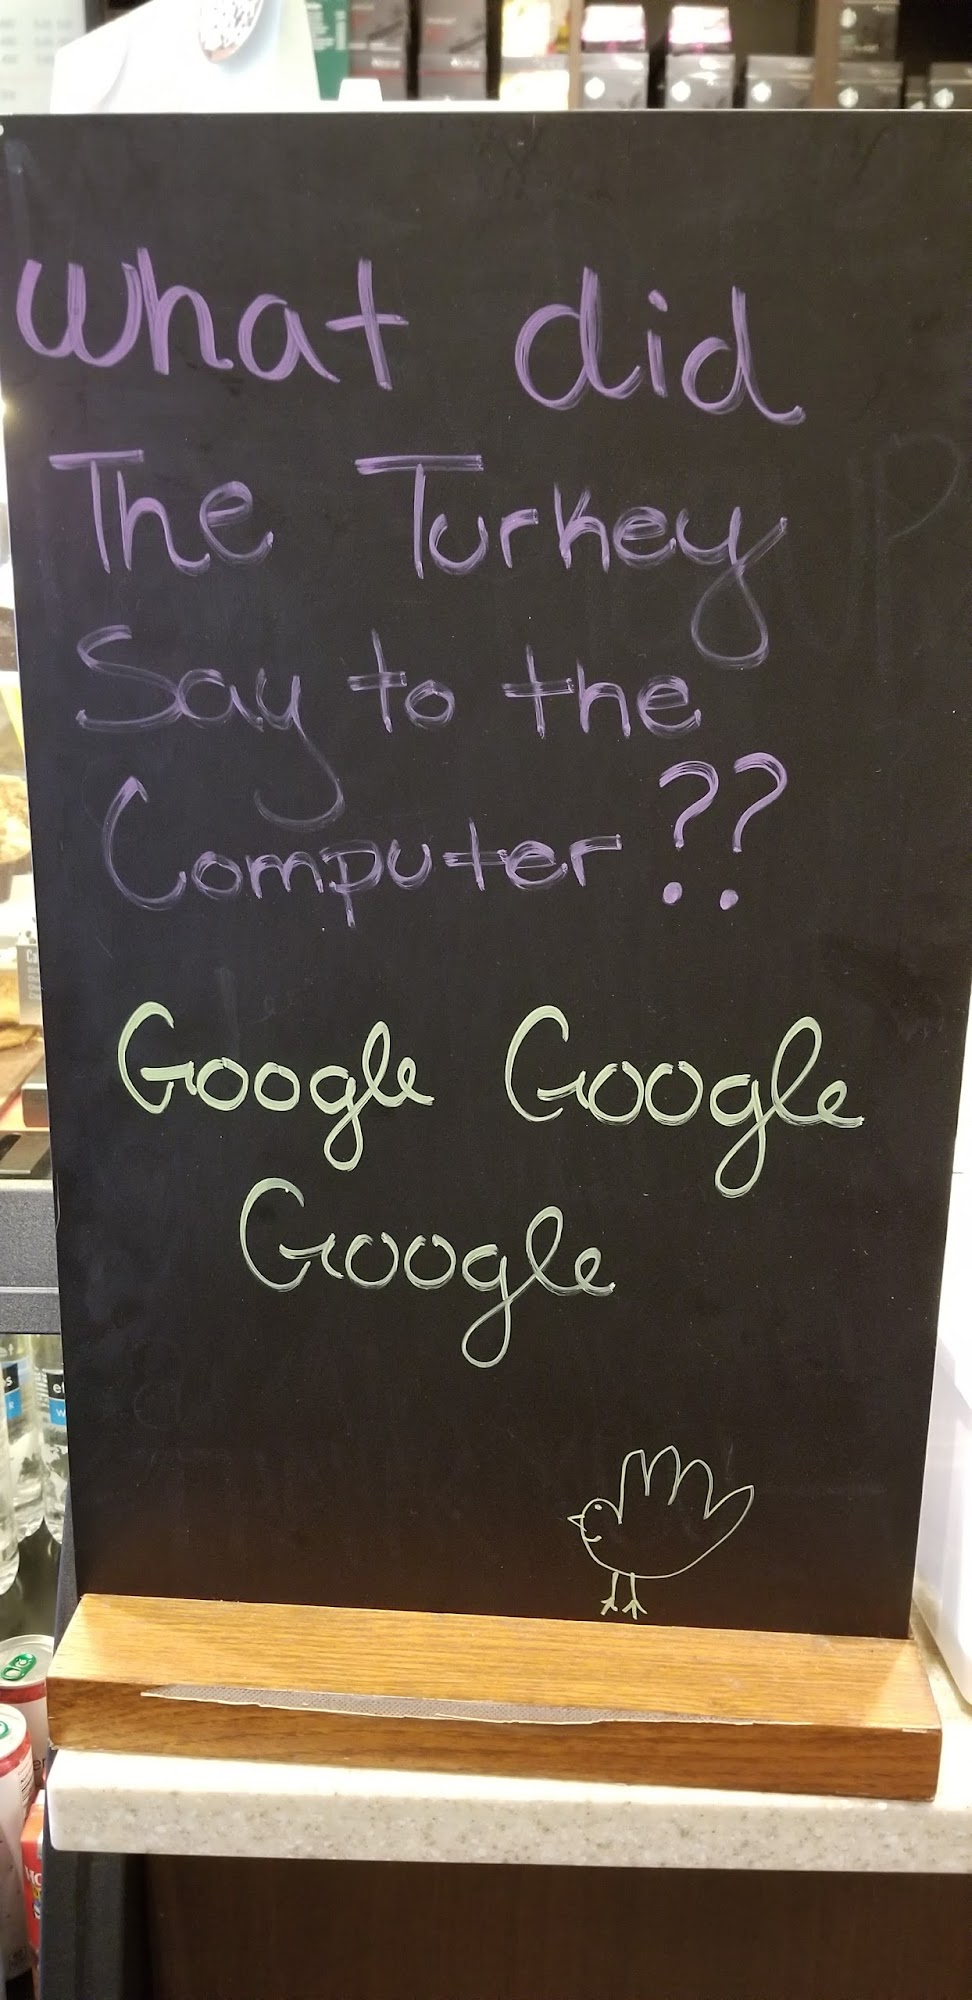 What did
The Turkey
Say to the
Computer??
Google Google
Google